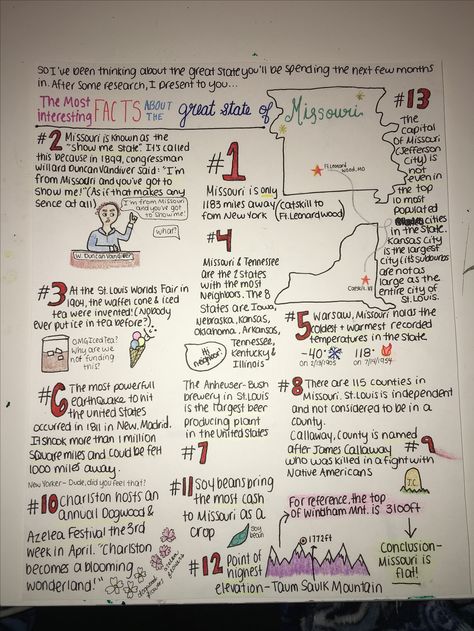 So I've been thinking about the great state you'll be spending the next few months
in. After some research, I present to you...
The Most
interesting FACTS ABOUT
THE great state of Missouri
#2 Missouri is known as the
"show me state". It's called
this because in 1899, congressman
Willard Duncan Vandiver said: "I'm
from Missouri and you've got to
Show me!" (As if that makes any
sence at all)
I'm from Missouri
and you've got
to show me!
what?
W. Duncan Vandiver
#1
Missouri is only
1183 miles away (Catskill to
from New York Ft. Leonard Wood)
Ft. Leonard
Wood, MO
Catskill, NY
#13
The
capital
of Missouri
(Jefferson
City) is
not even
in the
top
10 most
populated
cities
in the State.
Kansas City
is the largest
city (its suburbs
are not as
large as the
entire city of
St. Louis.
#3 At the St. Louis Worlds Fair in
1904, the waffle cone & iced
tea were invented! (Nobody
ever put ice in tea before?)
OMG Iced Tea?
Why are we
not funding
this?
#4
Missouri & Tennessee
are the 2 States
with the most
Neighbors. The 8
States are Iowa,
Nebraska, Kansas,
Oklahoma, Arkansas,
Tennessee,
Kentucky &
Illinois
Hi
neighbor!
#5 Warsaw, Missouri holds the
coldest + warmest recorded
temperatures in the state
-40° 118°
on 2/13/1905 on 7/14/1954
#6 The most powerful
earthquake to hit
the United States
occurred in 1811 in New Madrid.
It shook more than 1 million
Square miles and could be felt
1000 miles away.
New Yorker - Dude, did you feel that?
The Anheuser-Bush
brewery in St. Louis
is the largest beer
producing plant
in the United States
#7
#8 There are 115 counties in
Missouri. St. Louis is independent
and not considered to be in a
County.
Callaway County is named #9
after James Callaway
who was killed in a fight with
Native Americans
J.C.
#10 Charlston hosts an
annual Dogwood &
Azelea Festival the 3rd
week in April. "Charlston
becomes a blooming
wonderland!"
dogwood
flowers
azelea
flowers
#11 Soybeans bring
the most cash
to Missouri as a
crop
Soy
bean
For reference, the top
of Windham Mnt. is 3100ft
1772ft
Conclusion-
Missouri is
flat!
#12 Point of
highest
elevation - Taum Saulk Mountain